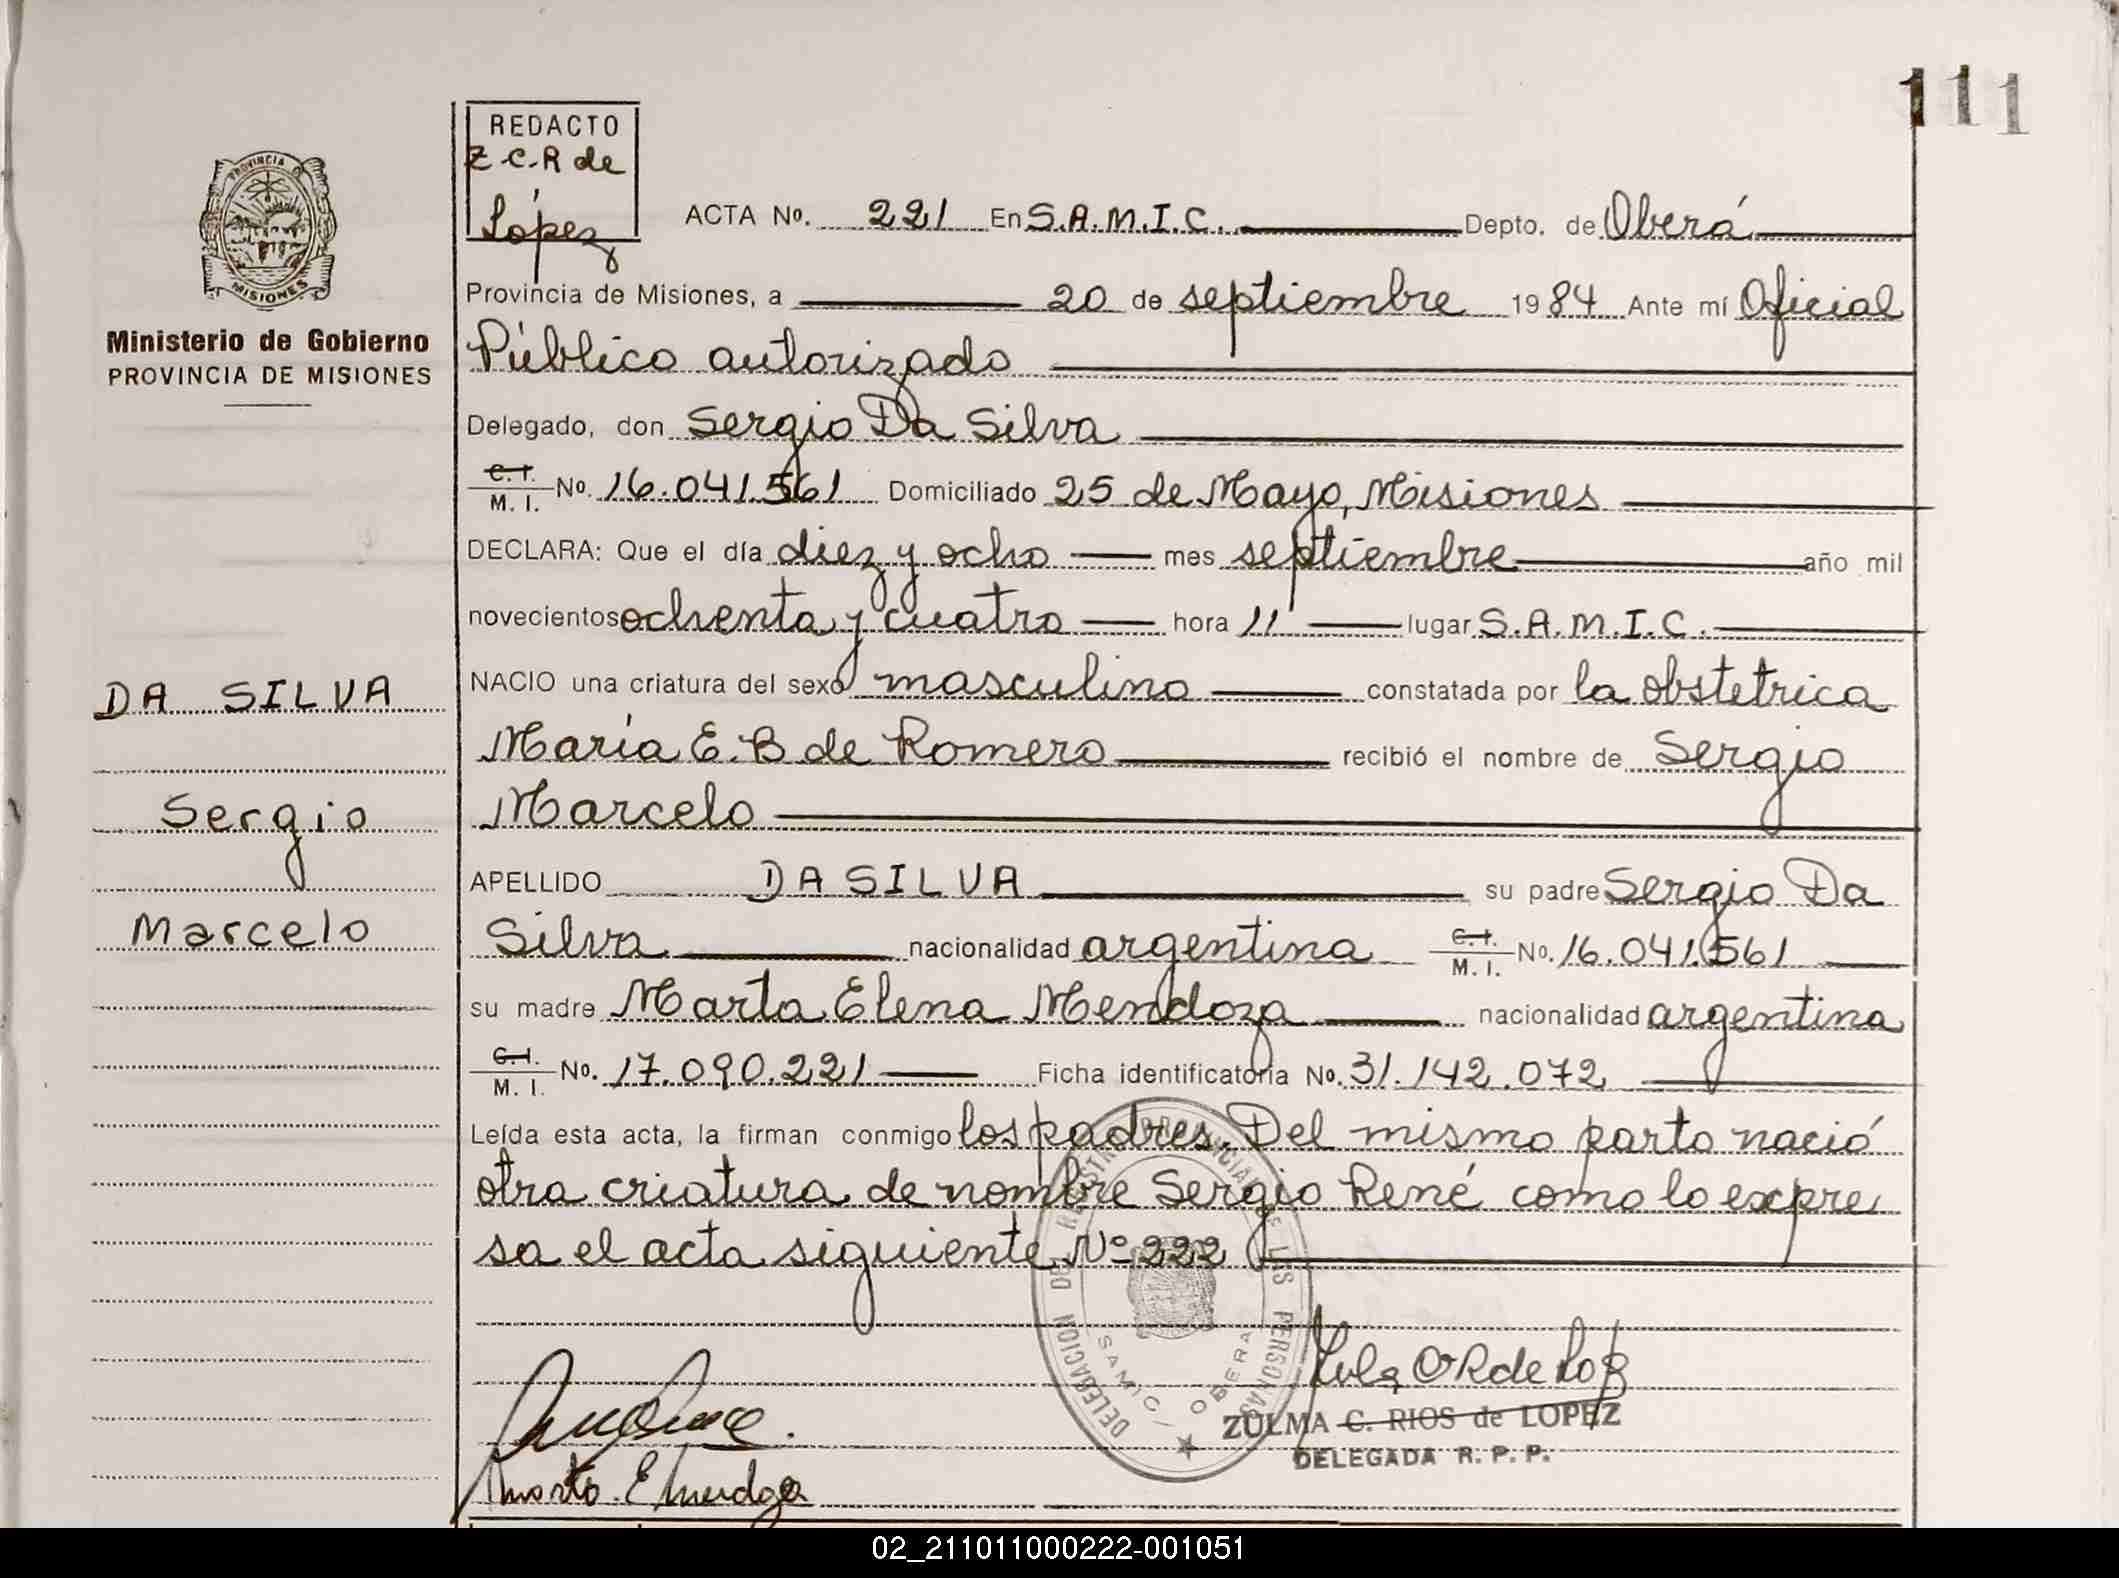 111
REDACTO
Z.C.R de
López
PROVINCIA
MISIONES
Ministerio de Gobierno
PROVINCIA DE MISIONES
ACTA No. 221 En S.A.M.I.C. Depto. de Oberá
Provincia de Misiones, a 20 de septiembre 1984 Ante mí Oficial
Público autorizado
Delegado, don Sergio Da Silva
C.I. M. I. No. 16.041.561 Domiciliado 25 de Mayo, Misiones
DECLARA: Que el día diez y ocho mes septiembre año mil
novecientos ochenta y cuatro hora 11 lugar S.A.M.I.C.
NACIO una criatura del sexo masculino constatada por la obstetrica
María E. B de Romero recibió el nombre de Sergio
Marcelo
APELLIDO DA SILVA su padre Sergio Da
Silva nacionalidad argentina C.I. M. I. No. 16.041.561
su madre Marta Elena Mendoza nacionalidad argentina
C.I. M. I. No. 17.090.221 Ficha identificatoria No. 31.142.072
Leída esta acta, la firman conmigo los padres. Del mismo parto nació
otra criatura de nombre Sergio René como lo expre
sa el acta siguiente Nº 222
DA SILVA
Sergio
Marcelo
DELEGACION DE REGISTRO PROVINCIAL DE LAS PERSONAS
SAMIC OBERA
ZULMA C. RIOS de LOPEZ
DELEGADA R. P. P.
Marta E Mendoza
02_211011000222-001051